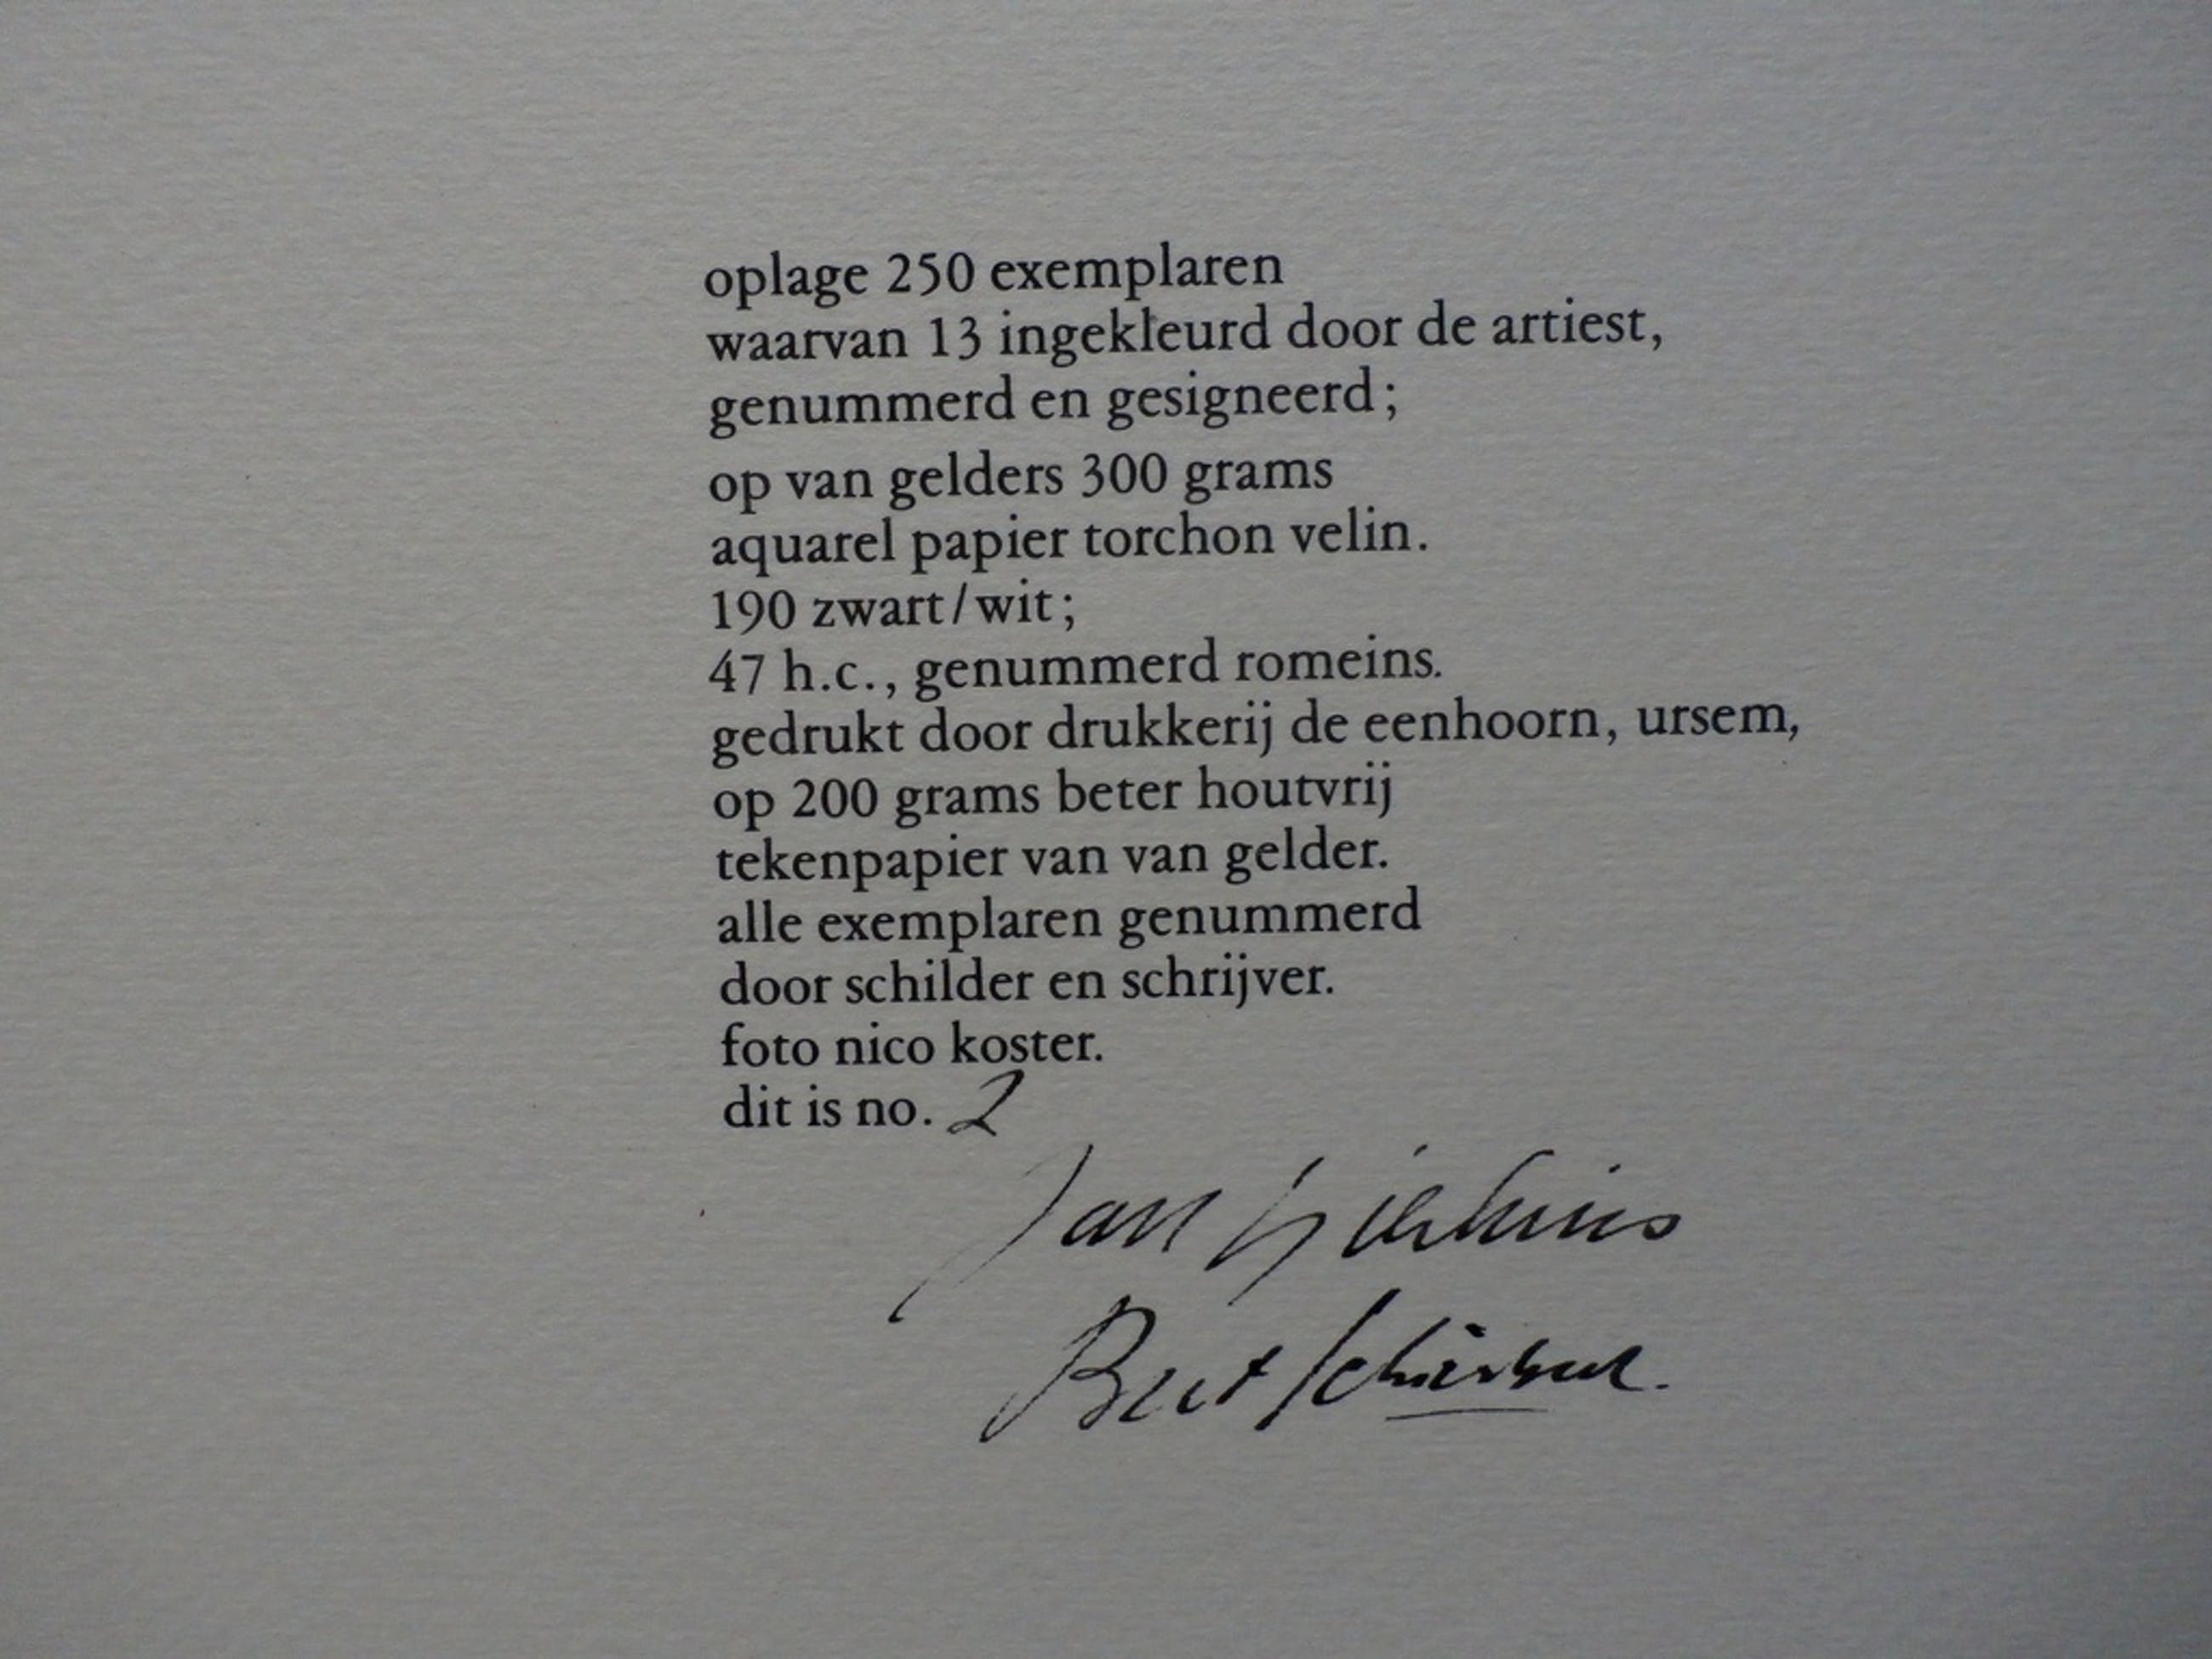 oplage 250 exemplaren
waarvan 13 ingekleurd door de artiest,
genummerd en gesigneerd;
op van gelders 300 grams
aquarel papier torchon velin.
190 zwart/wit;
47 h.c., genummerd romeins.
gedrukt door drukkerij de eenhoorn, ursem,
op 200 grams beter houtvrij
tekenpapier van van gelder.
alle exemplaren genummerd
door schilder en schrijver.
foto nico koster.
dit is no. 2
Jan
Bert Schierbeek.